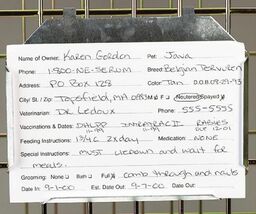 Name of Owner: Karen Gordon Pet: Java
Phone: 1-800-NE-SERUM Breed: Belgian Tervuren
Address: PO Box 128 Color: Tan D.O.B. 08-28-93
City/St./Zip: Topsfield, MA 01983 M F Neutered/Spayed
Veterinarian: Dr. Ledoux Phone: 555-5555
Vaccinations & Dates: DHLPP INTRATRAC II RABIES
11-99 11-99 DUE 12-01
Feeding Instructions: 1 3/4 C 2x day Medication: NONE
Special Instructions: must lie down and wait for
meals.
Grooming: None Bath Full comb through and nails
Date In: 9-1-00 Est. Date Out: 9-7-00 Date Out: